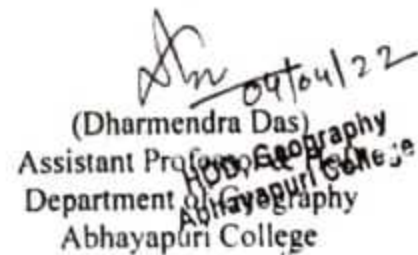 04/04/22
(Dharmendra Das)
Assistant Professor &
Department of Geography
Abhayapuri College
HOD, Geography
Abhayapuri College